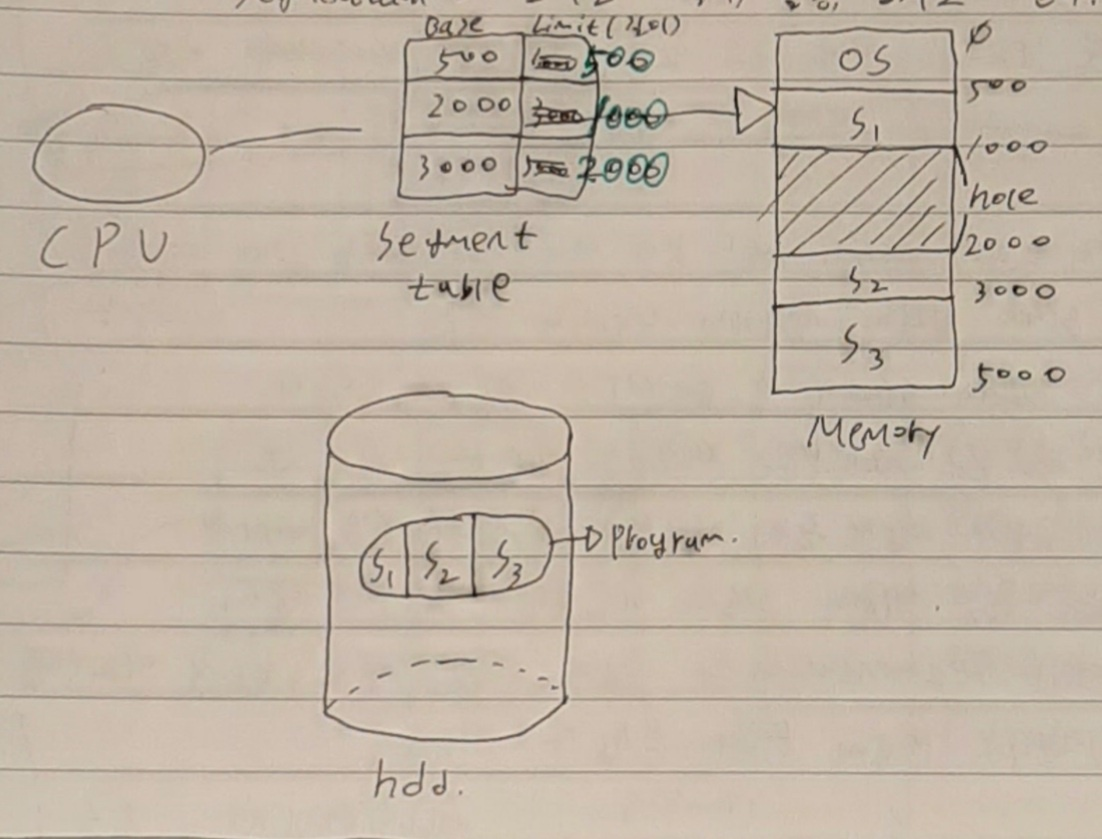 Base Limit(길이)
500 500
2000 1000
3000 2000
Segment
table
CPU
OS
S1
S2
S3
0
500
1000
hole
2000
3000
5000
Memory
S1 S2 S3
Program.
hdd.